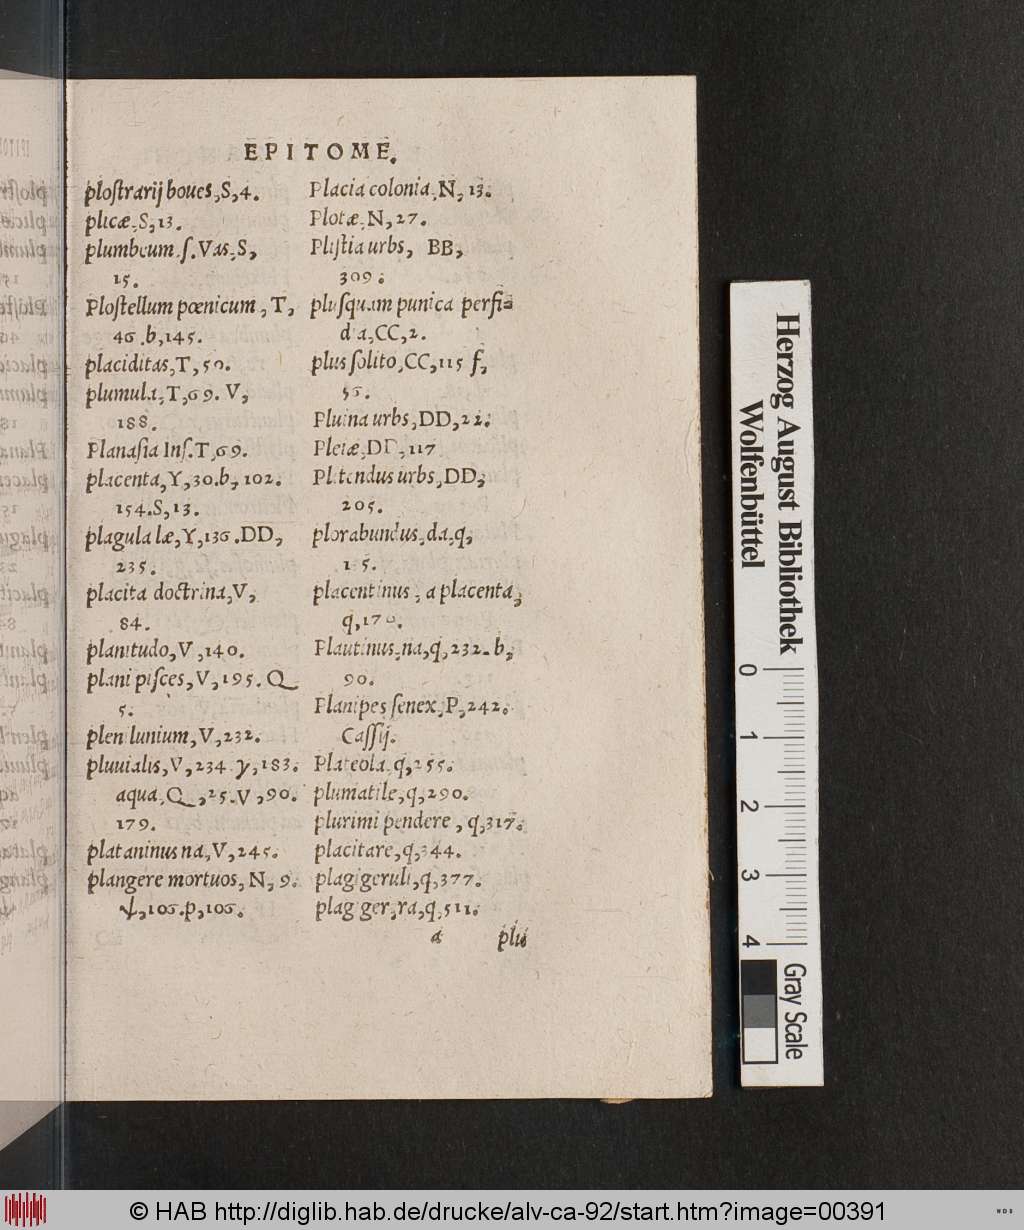 EPITOME.
ploſtrarij boues, S, 4.
plicæ, S, 13.
plumbeum. ſ. Vas, S,
15.
Ploſtellum pœnicum, T,
46.b, 145.
placiditas, T, 50.
plumula, T, 69. V,
188.
Planaſia Inſ. T, 69.
placenta, Y, 30.b, 102.
154. S, 13.
plagula læ, Y, 136. DD,
235.
placita doctrina, V,
84.
planitudo, V, 140.
plani piſces, V, 195. Q
5.
plenilunium, V, 232.
pluuialis, V, 234. y, 183.
aqua, Q, 25. V, 90.
179.
plataninus na, V, 245.
plangere mortuos, N, 9.
ψ, 106. p, 106.
Placia colonia, N, 13.
Plotæ, N, 27.
Pliſtia urbs, BB,
309.
pluſquam punica perfi=
dia, CC, 2.
plus ſolito, CC, 115 f,
56.
Pluina urbs, DD, 22.
Pleiæ, DD, 117
Plitendus urbs, DD,
205.
plorabundus, da, q,
placentinus, a placenta,
q,
Plautinus, na, q, 232. b,
90.
Planipes ſenex, P, 242.
Caſſij.
Plateola, q, 255.
plumatile, q, 290.
plurimi pendere, q, 317.
placitare, q, 344.
plagigeruli, q, 377.
plagiger, ra, q, 511.
a plu
Herzog August Bibliothek
Wolfenbüttel
0 1 2 3 4
Gray Scale
© HAB http://diglib.hab.de/drucke/alv-ca-92/start.htm?image=00391